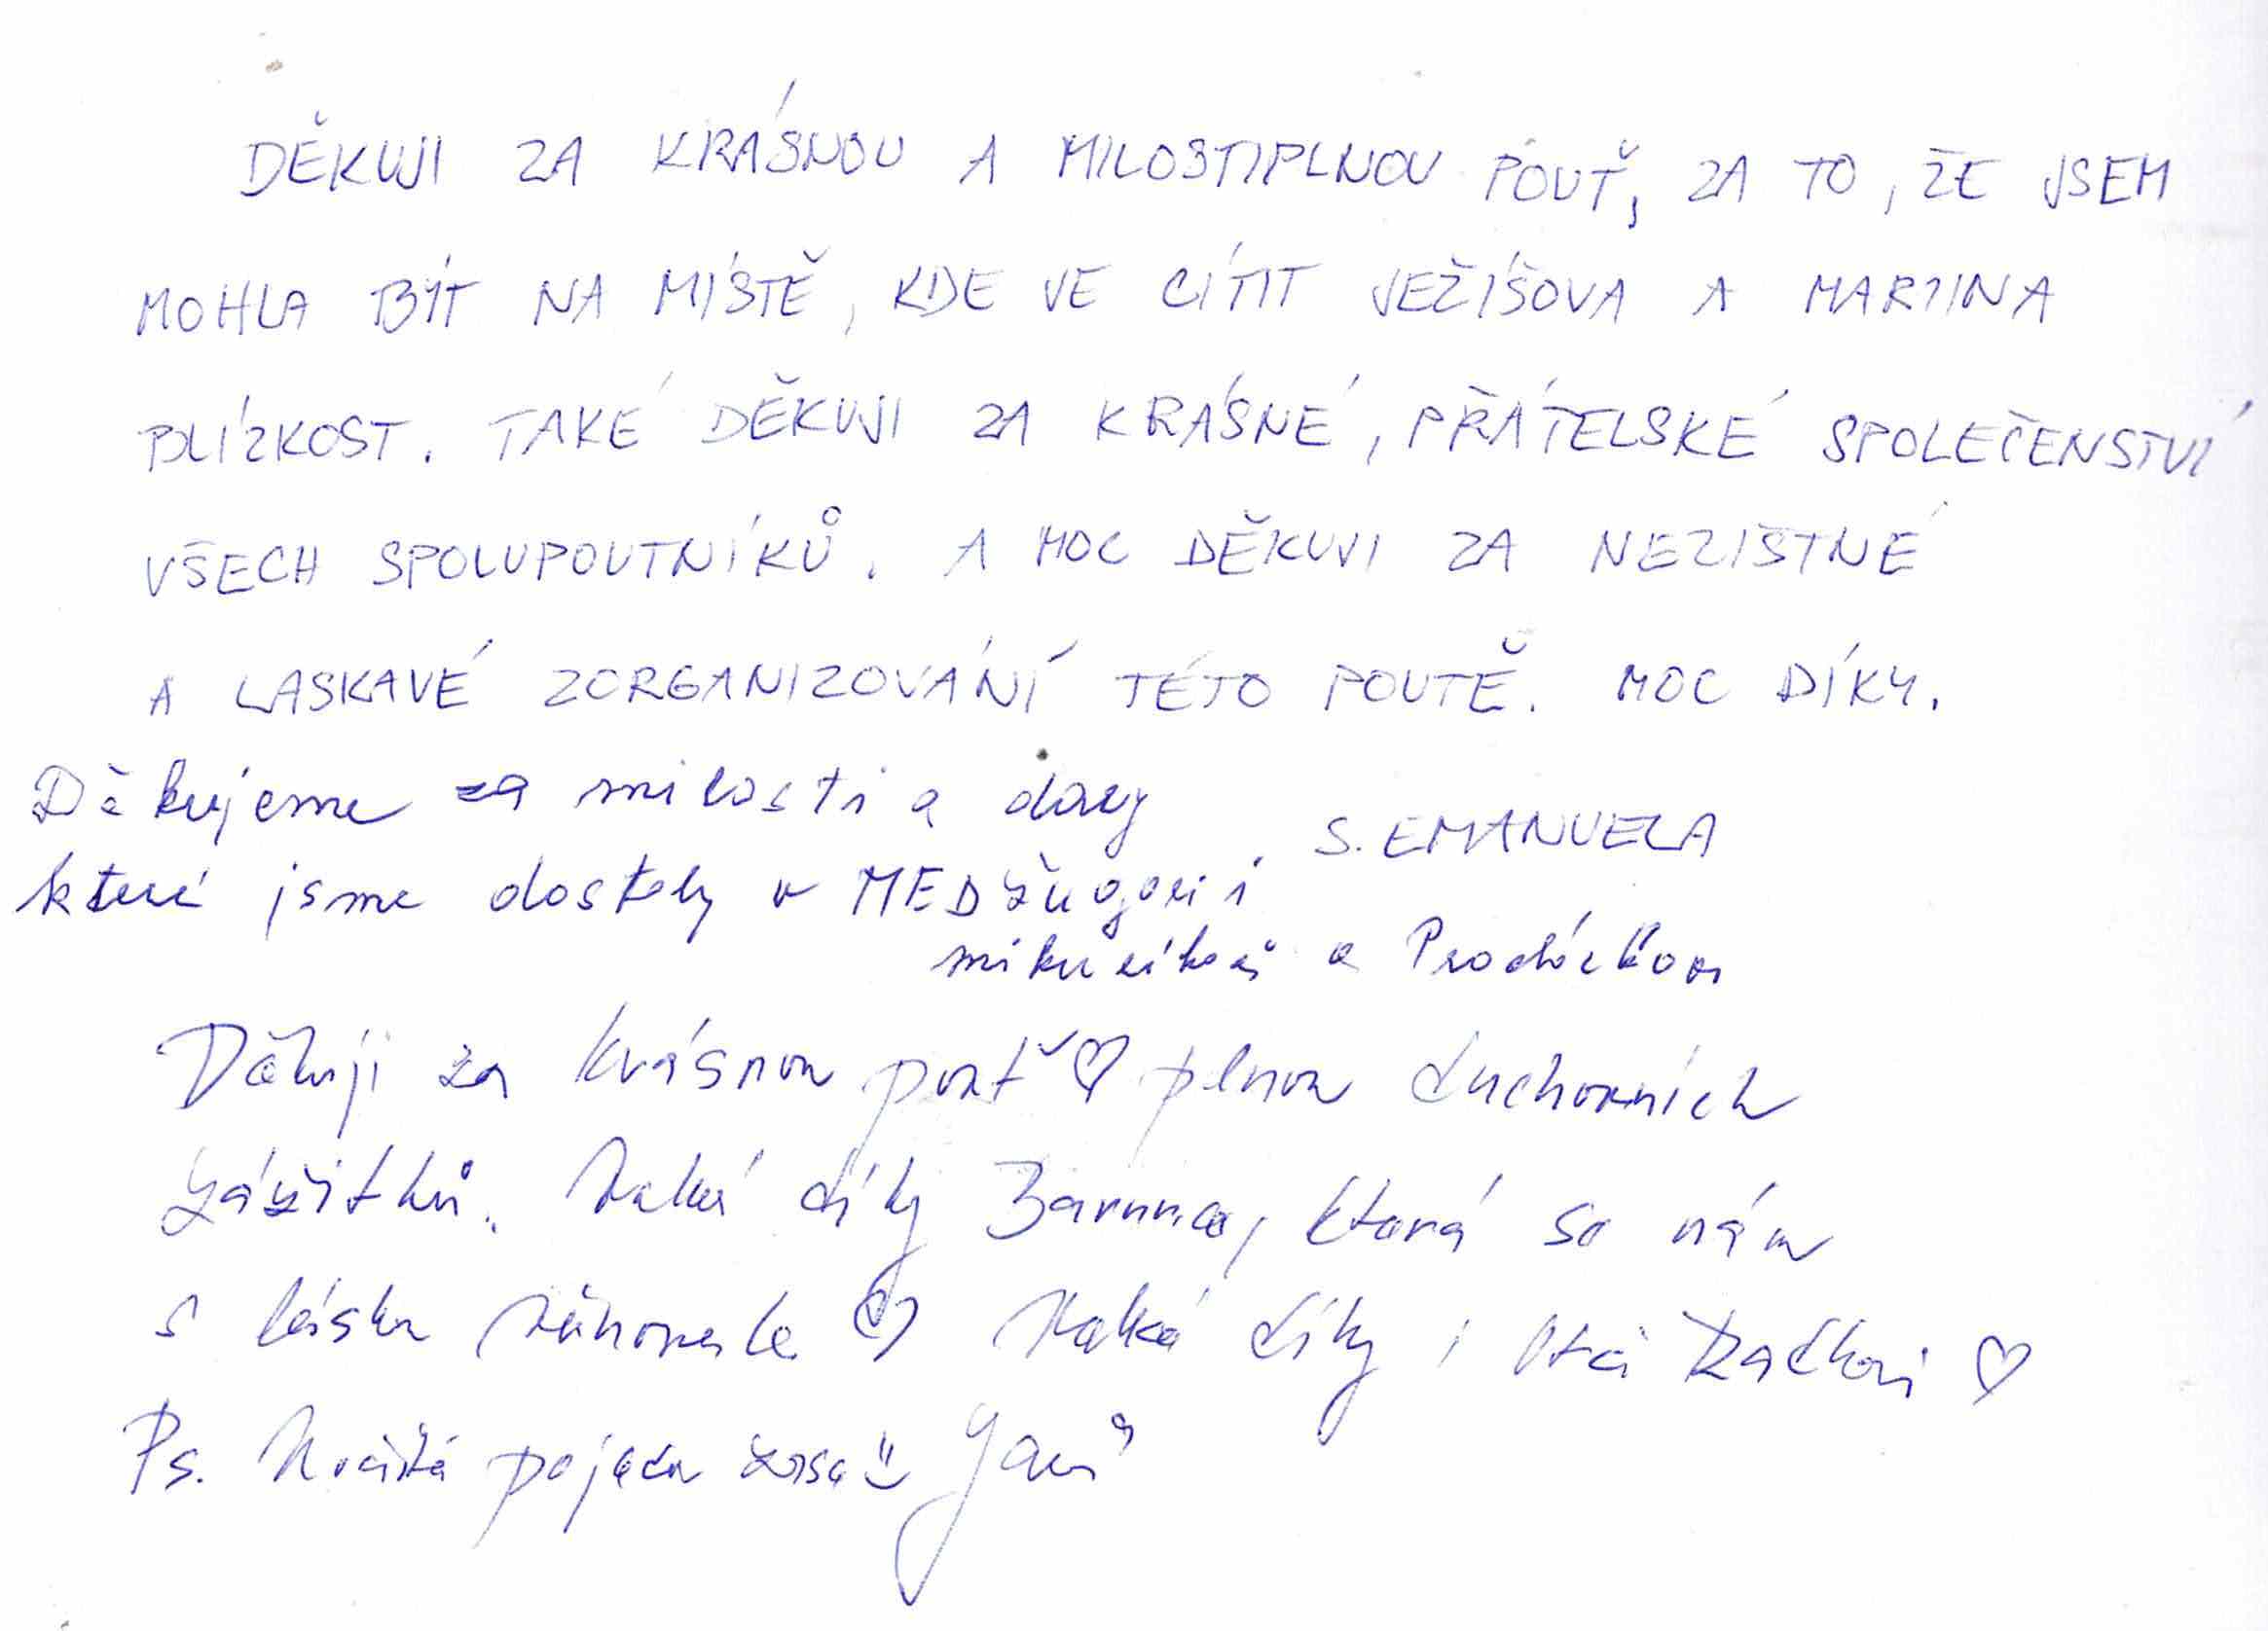 DĚKUJI ZA KRÁSNOU A MILOSTIPLNOU POUŤ, ZA TO, ŽE JSEM
MOHLA BÝT NA MÍSTĚ, KDE JE CÍTIT JEŽÍŠOVA A MARIINA
BLÍZKOST. TAKÉ DĚKUJI ZA KRÁSNÉ, PŘÁTELSKÉ SPOLEČENSTVÍ
VŠECH SPOLUPOUTNÍKŮ. A MOC DĚKUJI ZA NEZIŠTNÉ
A LASKAVÉ ZORGANIZOVÁNÍ TÉTO POUTĚ. MOC DÍKY.
S. EMANUELA
Děkujeme za milosti a dary
které jsme dostaly v MEDžugorii
a
Děkuji za krásnou pouť ♡ plnou duchovních
zážitků. Velké díky která se nám
s láskou věnovala ♡ Velké díky i ♡
Ps. pojedu zase